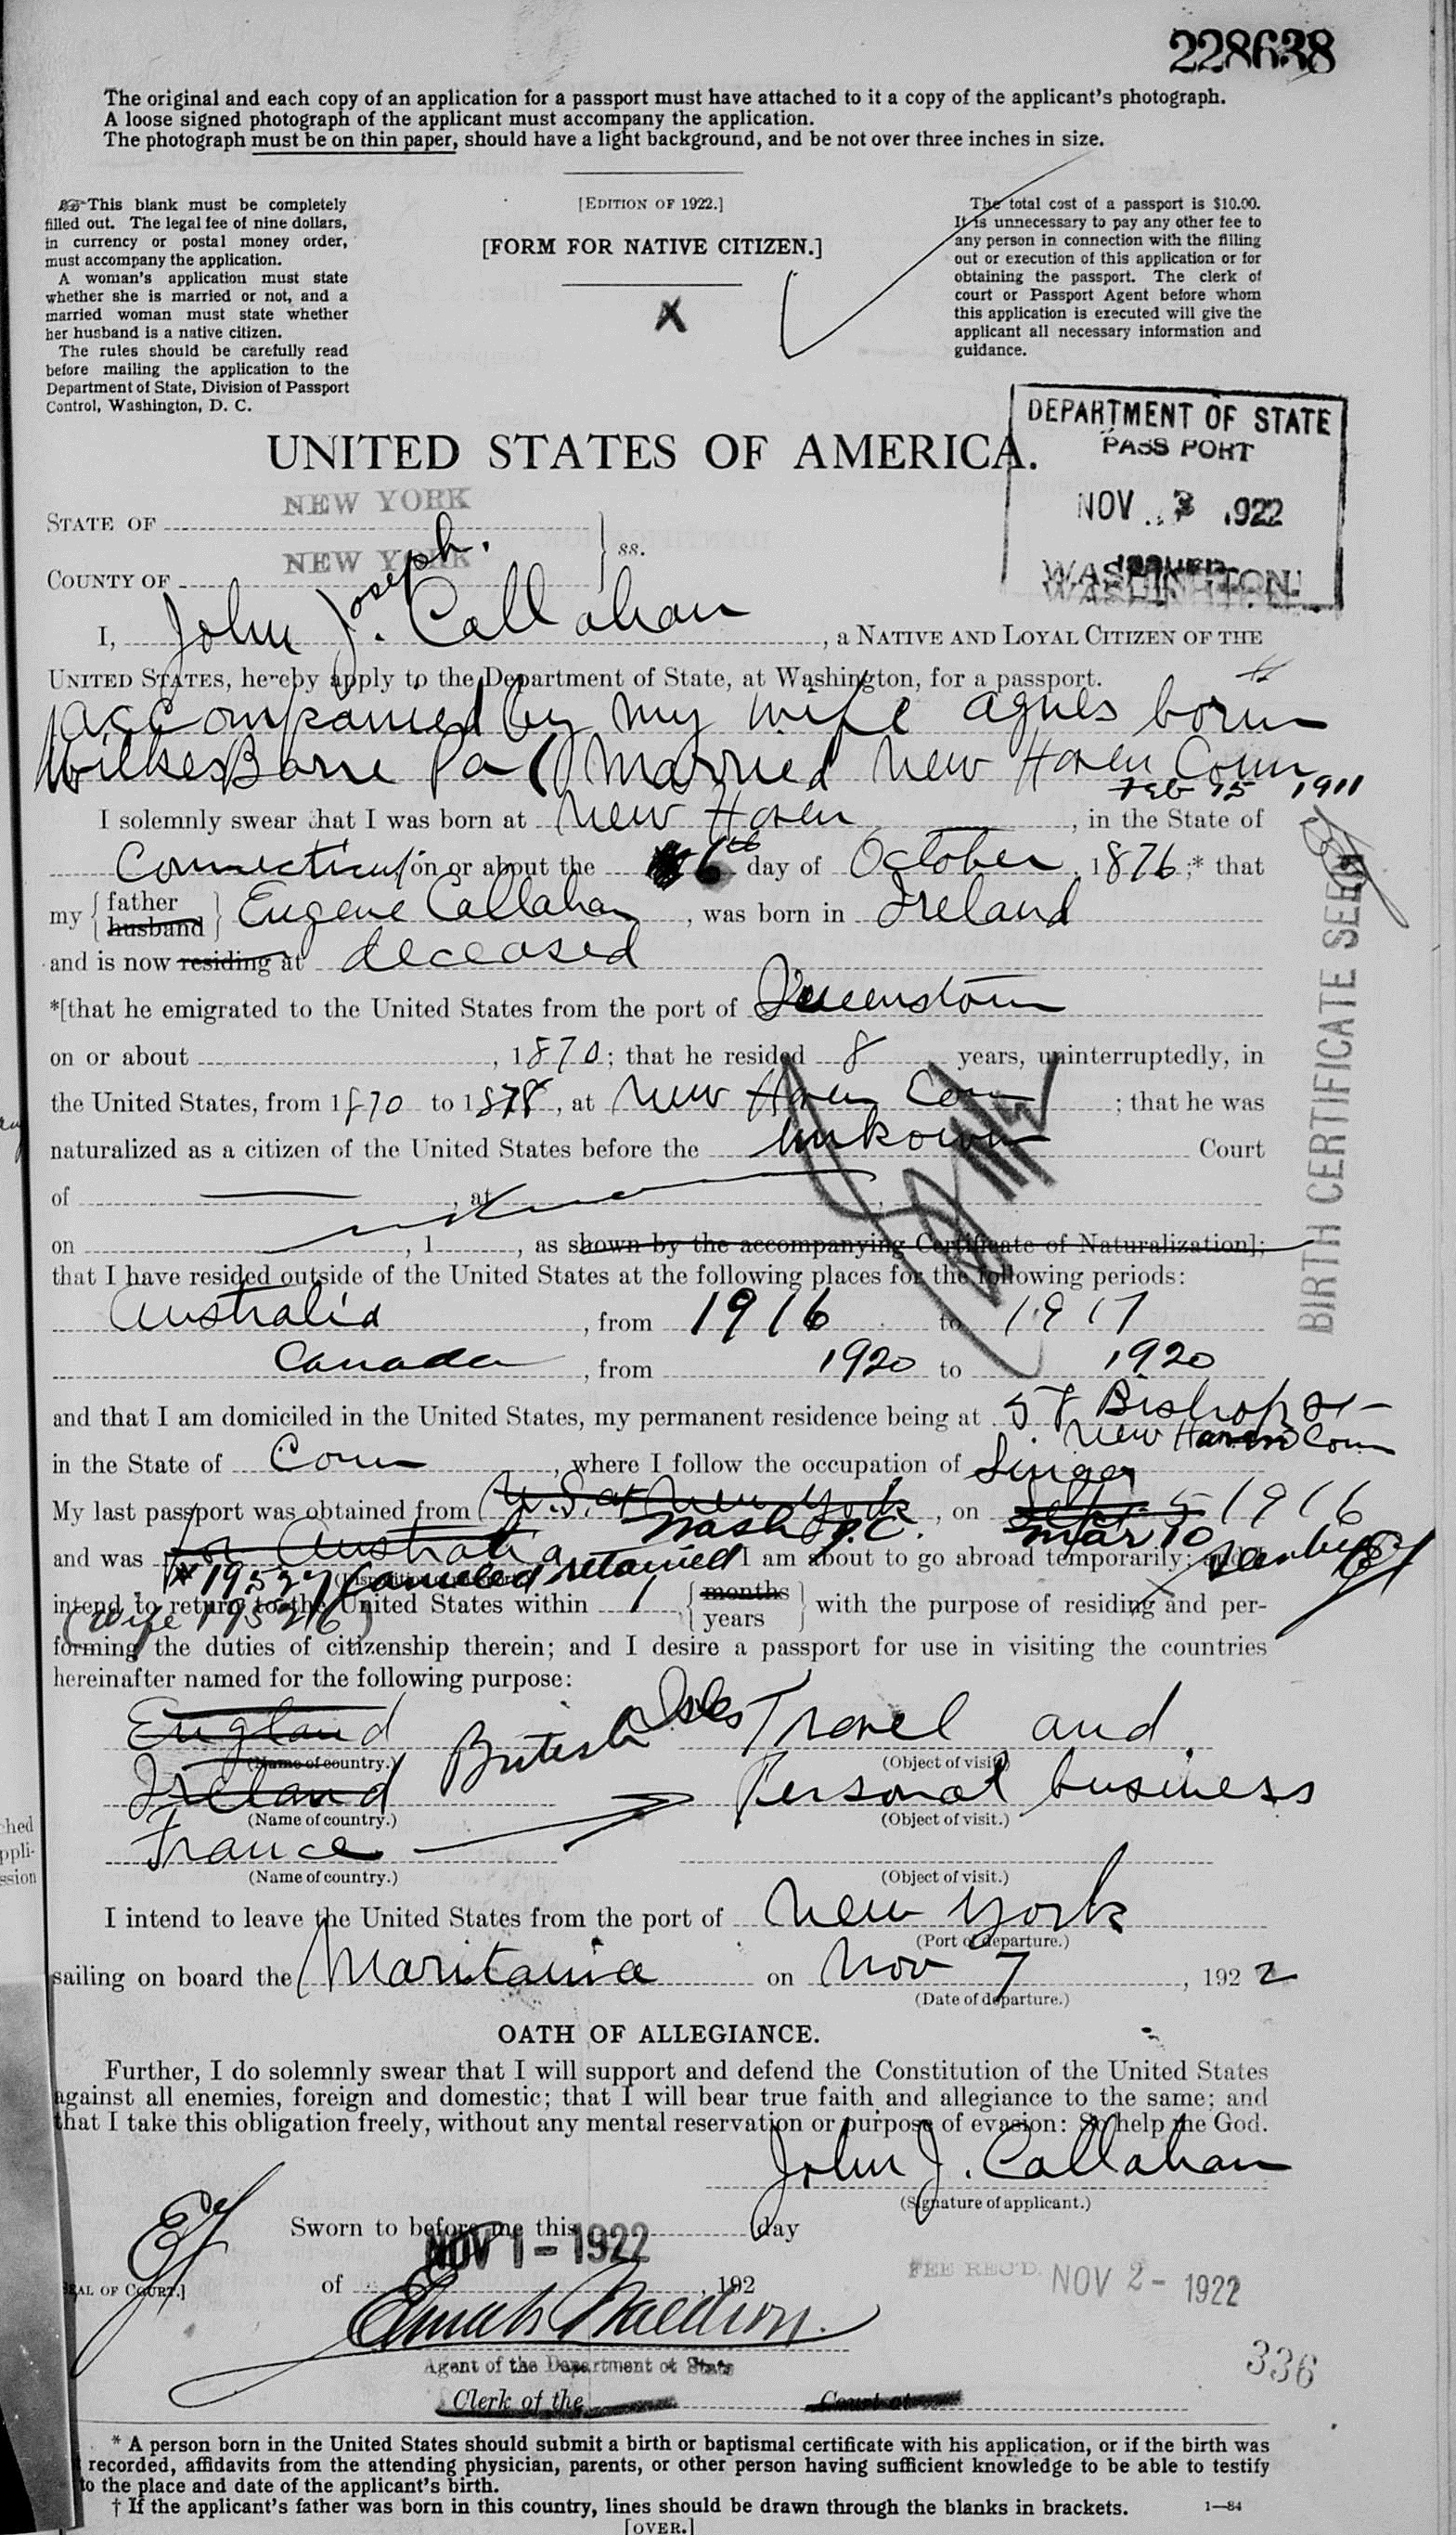 228638
The original and each copy of an application for a passport must have attached to it a copy of the applicant's photograph.
A loose signed photograph of the applicant must accompany the application.
The photograph must be on thin paper, should have a light background, and be not over three inches in size.
This blank must be completely
filled out. The legal fee of nine dollars,
in currency or postal money order,
must accompany the application.
A woman's application must state
whether she is married or not, and a
married woman must state whether
her husband is a native citizen.
The rules should be carefully read
before mailing the application to the
Department of State, Division of Passport
Control, Washington, D. C.
[EDITION OF 1922.]
[FORM FOR NATIVE CITIZEN.]
X
The total cost of a passport is $10.00.
It is unnecessary to pay any other fee to
any person in connection with the filling
out or execution of this application or for
obtaining the passport. The clerk of
court or Passport Agent before whom
this application is executed will give the
applicant all necessary information and
guidance.
DEPARTMENT OF STATE
PASS PORT
NOV. 3 1922
ISSUED
WASHINGTON
UNITED STATES OF AMERICA.
STATE OF NEW YORK
COUNTY OF NEW YORK ss.
Joseph.
I, John J. Callahan, a NATIVE AND LOYAL CITIZEN OF THE
UNITED STATES, hereby apply to the Department of State, at Washington, for a passport.
accompanied by my wife agnes born
Wilkes Barre Pa Married New Haven Conn
Feb 15 1911
I solemnly swear that I was born at New Haven, in the State of
Connecticut on or about the 6th day of October, 1876;* that
my { father husband } Eugene Callahan, was born in Ireland
and is now residing at deceased
*[that he emigrated to the United States from the port of Queenstown
on or about , 1870; that he resided 8 years, uninterruptedly, in
the United States, from 1870 to 1878, at New Haven Conn; that he was
naturalized as a citizen of the United States before the unkown Court
of , at
on , 1 , as shown by the accompanying Certificate of Naturalization];
that I have resided outside of the United States at the following places for the following periods:
Australia, from 1916 to 1917
Canada, from 1920 to 1920
and that I am domiciled in the United States, my permanent residence being at 58 Bishop St
New Haven Conn
in the State of Conn, where I follow the occupation of Singer
My last passport was obtained from U.S. at New York, on Sept. 5 1916
Wash D.C. Mar 10
and was for Australia I am about to go abroad temporarily;
#19527 Canceled retained
intend to return to the United States within 1 { months years } with the purpose of residing and per-
(wife 19526)
forming the duties of citizenship therein; and I desire a passport for use in visiting the countries
hereinafter named for the following purpose:
England British Isles Travel and
(Name of country.) (Object of visit.)
Ireland Personal business
(Name of country.) (Object of visit.)
France
(Name of country.) (Object of visit.)
I intend to leave the United States from the port of New York
(Port of departure.)
sailing on board the Maritania on Nov 7, 1922
(Date of departure.)
OATH OF ALLEGIANCE.
Further, I do solemnly swear that I will support and defend the Constitution of the United States
against all enemies, foreign and domestic; that I will bear true faith and allegiance to the same; and
that I take this obligation freely, without any mental reservation or purpose of evasion: So help me God.
John J. Callahan
(Signature of applicant.)
Sworn to before me this day
NOV 1 - 1922
of , 192
[SEAL OF COURT.]
FEE REC'D. NOV 2 - 1922
Agent of the Department of State
Clerk of the Court at
336
* A person born in the United States should submit a birth or baptismal certificate with his application, or if the birth was
recorded, affidavits from the attending physician, parents, or other person having sufficient knowledge to be able to testify
to the place and date of the applicant's birth.
† If the applicant's father was born in this country, lines should be drawn through the blanks in brackets.
1—84
[OVER.]
BIRTH CERTIFICATE SEEN